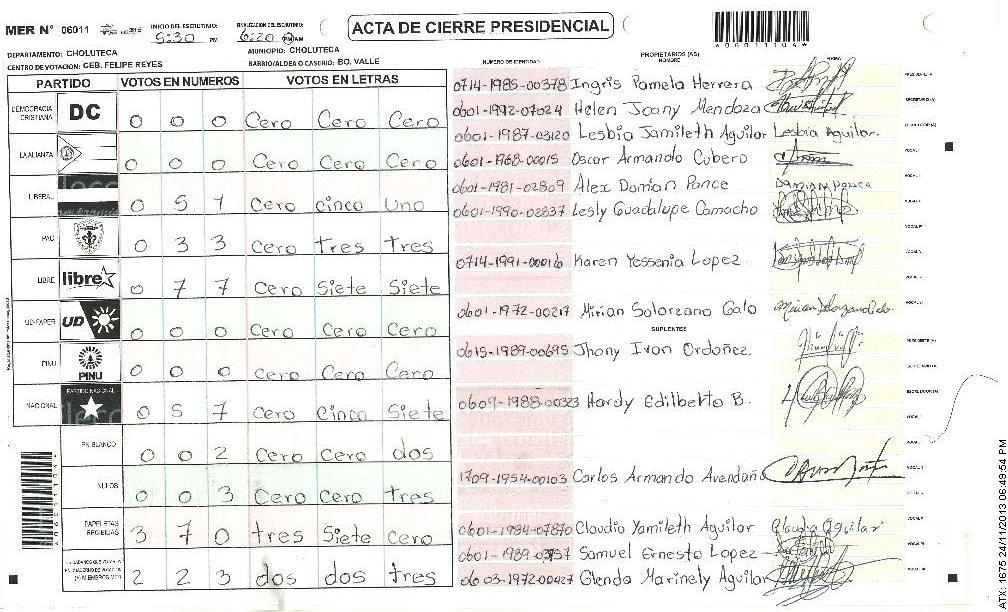 MER Nº 06011
INICIO DEL ESCRUTINIO: 5:30 PM
FINALIZACION DEL ESCRUTINIO: 6:20 PM AM
ACTA DE CIERRE PRESIDENCIAL
*060111104*
DEPARTAMENTO: CHOLUTECA
MUNICIPIO: CHOLUTECA
CENTRO DE VOTACION: CEB. FELIPE REYES
BARRIO/ALDEA O CASERIO: BO. VALLE
PARTIDO VOTOS EN NUMEROS VOTOS EN LETRAS
DEMOCRACIA CRISTIANA DC 0 0 0 Cero Cero Cero
LA ALIANZA 0 0 0 Cero Cero Cero
LIBERAL 0 5 1 Cero cinco uno
PAC 0 3 3 Cero tres tres
LIBRE libre 0 7 7 Cero Siete Siete
UD-FAPER UD 0 0 0 Cero Cero Cero
PINU PINU 0 0 0 Cero Cero Cero
NACIONAL PARTIDO NACIONAL 0 5 7 Cero Cinco Siete
EN BLANCO 0 0 2 Cero Cero dos
NULOS 0 0 3 Cero Cero tres
PAPELETAS RECIBIDAS 3 7 0 tres Siete Cero
2 2 3 dos dos tres
NUMERO DE IDENTIDAD
PROPIETARIOS (AS)
NOMBRE
FIRMA
0714-1985-00378 Ingris Pamela Herrera
0601-1992-07024 Helen Joany Mendoza
0601-1987-03120 Lesbia Jamileth Aguilar Lesbia Aguilar.
0601-1968-00015 Oscar Armando Cubero
0601-1981-02809 Alex Damian Ponce Damian Ponce
0601-1990-02837 Lesly Guadalupe Camacho
0714-1991-00016 Karen Yessenia Lopez.
0601-1972-00217 Mirian Solorzano Galo
SUPLENTES
0615-1989-00695 Jhony Ivan Ordoñez.
0609-1988-00323 Hardy Edilberto B.
1709-1954-00103 Carlos Armando Avendaño
0601-1984-07870 Claudia Yamileth Aguilar Claudia Aguilar
Samuel Ernesto Lopez
0603-1972-00427 Glenda Marinely Aguilar
ATX: 1675 24/11/2013 06:49:54 PM